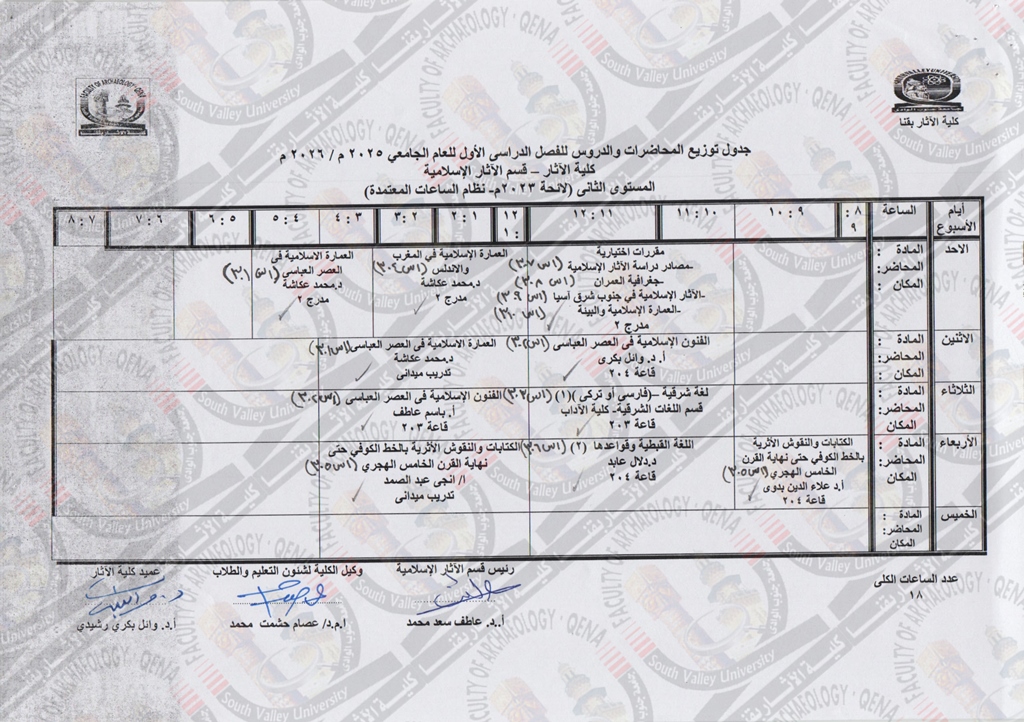 كلية الآثار بقنا
جدول توزيع المحاضرات والدروس للفصل الدراسي الأول للعام الجامعي ٢٠٢٥ م / ٢٠٢٦ م
كلية الآثار – قسم الآثار الإسلامية
المستوى الثانى (لائحة ٢٠٢٣م- نظام الساعات المعتمدة)
أيام الأسبوع
الساعة
٨ : ٩
٩ : ١٠
١٠ : ١١
١١ : ١٢
١٢ : ١
١ : ٢
٢ : ٣
٣ : ٤
٤ : ٥
٥ : ٦
٦ : ٧
٧ : ٨
الاحد
المادة :
المحاضر:
المكان :
مقررات اختيارية
-مصادر دراسة الآثار الإسلامية (اس٣٠٧)
-جغرافية العمران (اس ٣٠٨)
-الآثار الإسلامية في جنوب شرق آسيا (اس ٣٠٩)
-العمارة الإسلامية والبيئة (اس٣١٠)
مدرج ٢
العمارة الإسلامية في المغرب
والاندلس (اس٣٠٤)
د.محمد عكاشة
مدرج ٢
العمارة الاسلامية فى
العصر العباسي (اس٣٠١)
د.محمد عكاشة
مدرج ٢
الاثنين
المادة :
المحاضر:
المكان
الفنون الإسلامية فى العصر العباسى (اس٣٠٢)
أ. د. وائل بكرى
قاعة ٢٠٤
العمارة الاسلامية فى العصر العباسى(اس٣٠١)
د.محمد عكاشة
تدريب ميدانى
الثلاثاء
المادة :
المحاضر:
المكان
لغة شرقية –(فارسي أو تركى )(١) (اس٣٠٣)
قسم اللغات الشرقية- كلية الآداب
قاعة ٢٠٣
الفنون الإسلامية فى العصر العباسى (اس٣٠٢)
أ. باسم عاطف
قاعة ٢٠٣
الأربعاء
المادة :
المحاضر:
المكان
الكتابات والنقوش الأثرية
بالخط الكوفي حتى نهاية القرن
الخامس الهجري (اس٣٠٥)
أ.د علاء الدين بدوى
قاعة ٢٠٤
اللغة القبطية وقواعدها (٢) (اس٣٠٦)
د.دلال عابد
قاعة ٢٠٤
الكتابات والنقوش الأثرية بالخط الكوفي حتى
نهاية القرن الخامس الهجري (اس٣٠٥)
ا/ انجى عبد الصمد
تدريب ميدانى
الخميس
المادة :
المحاضر:
المكان
عدد الساعات الكلى
١٨
رئيس قسم الآثار الإسلامية
أ.د. عاطف سعد محمد
وكيل الكلية لشئون التعليم والطلاب
ا.م.د/ عصام حشمت محمد
عميد كلية الآثار
أ.د. وائل بكري رشيدي
FACULTY OF ARCHAEOLOGY · QENA
South Valley University